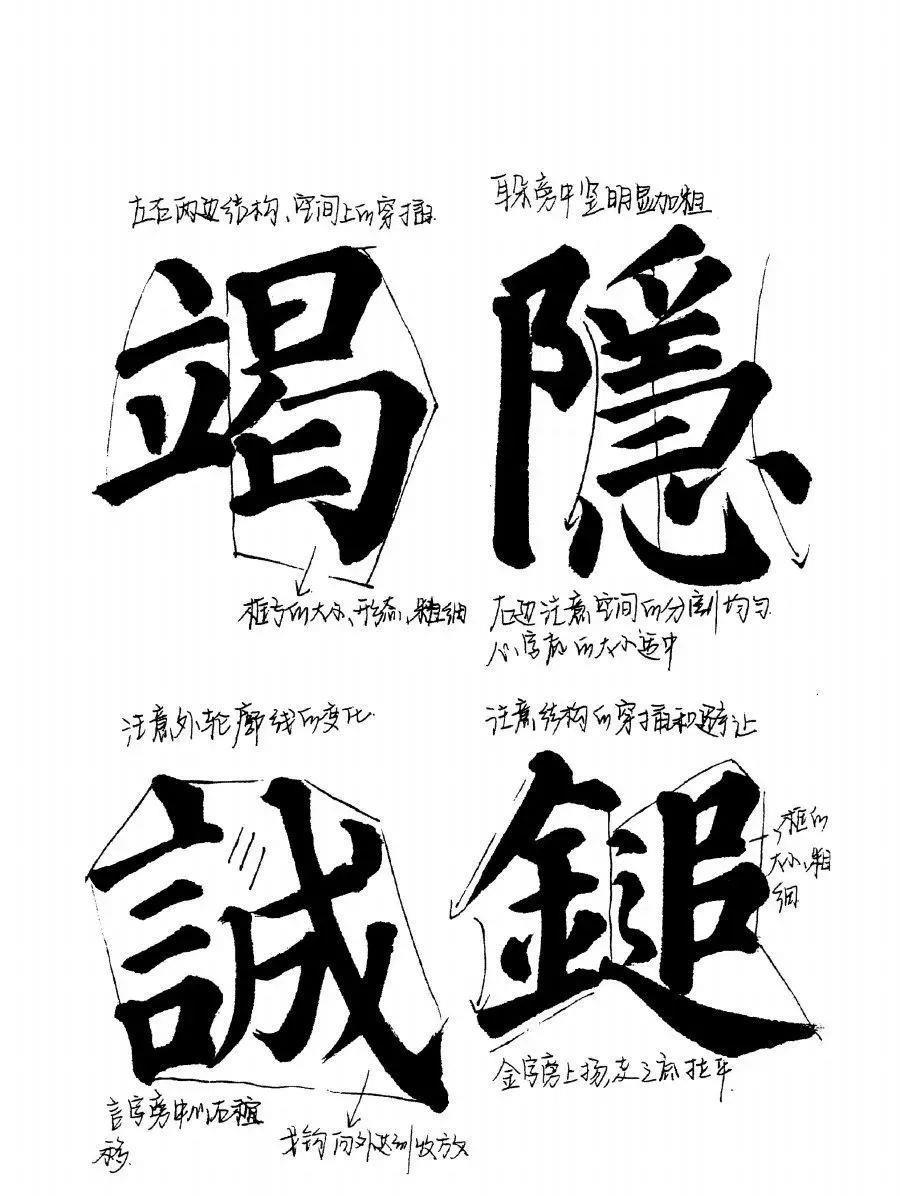 左右两边结构、空间上的穿插.
竭
框字的大小、形态、粗细
耳朵旁中竖明显加粗
隱
右边注意空间的分割均匀
心字底的大小适中
注意外轮廓线的变化.
誠
言字旁中心右
移.
戈钩向外达到收放
注意结构的穿插和避让
鎚
框的
大小、粗
细
金字旁上扬,走之底拉平